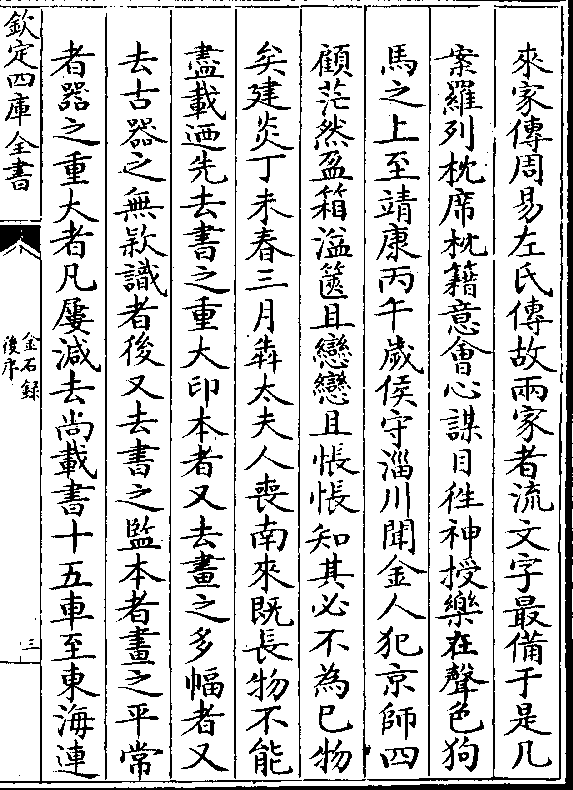 來家傳周易左氏傳故兩家者流文字最備于是几
案羅列枕席枕籍意會心謀目徃神授樂在聲色狗
馬之上至靖康丙午歲侯守淄川聞金人犯京師四
顧茫然盈箱溢篋且戀戀且悵悵知其必不為已物
矣建炎丁未春三月犇太夫人喪南來既長物不能
盡載廼先去書之重大印本者又去畫之多幅者又
去古器之無款識者後又去書之監本者畫之平常
者器之重大者凡屢減去尚載書十五車至東海連
欽定四庫全書
金石録
後序
三